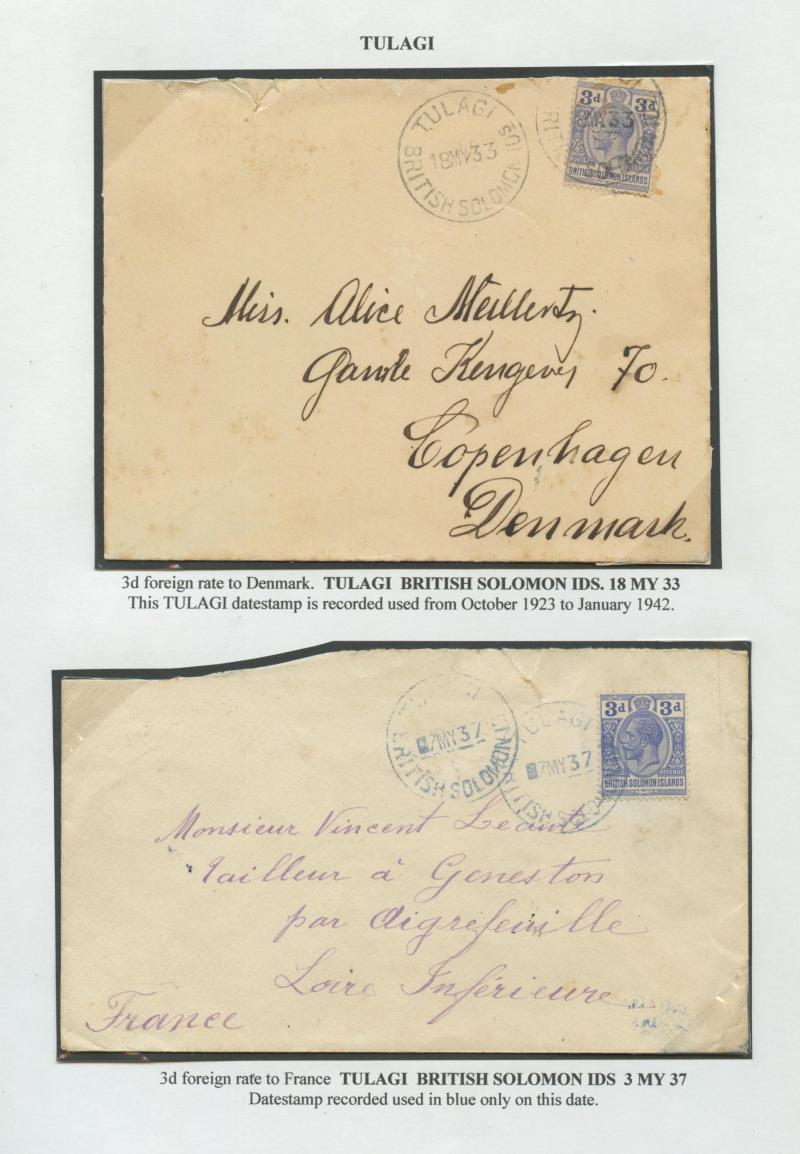 TULAGI
TULAGI
18MY33
BRITISH SOLOMON IDS
3d 3d
MY33
BRITISH SOLOMON ISLANDS
Miss. Alice Meillertz.
Gamle Kongevej 70.
Copenhagen
Denmark.
3d foreign rate to Denmark. TULAGI BRITISH SOLOMON IDS. 18 MY 33
This TULAGI datestamp is recorded used from October 1923 to January 1942.
7MY37
BRITISH SOLOMON
ULAGI
7MY37
3d 3d
REVENUE
BRITISH SOLOMON ISLANDS
Monsieur Vincent
Tailleur à Geneston
par Aigrefeuille
Loire Inférieure
France
3d foreign rate to France TULAGI BRITISH SOLOMON IDS 3 MY 37
Datestamp recorded used in blue only on this date.